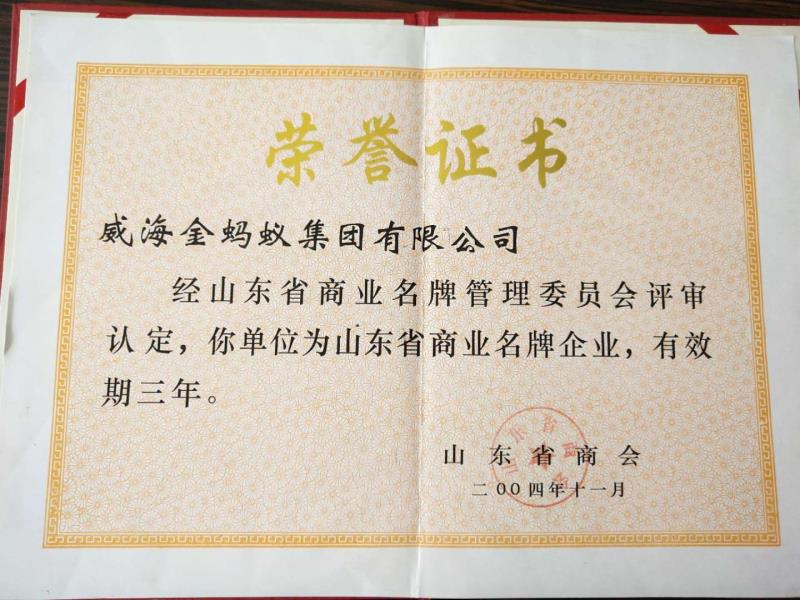 荣誉证书
威海金蚂蚁集团有限公司
经山东省商业名牌管理委员会评审
认定，你单位为山东省商业名牌企业，有效
期三年。
山东省商会
二00四年十一月